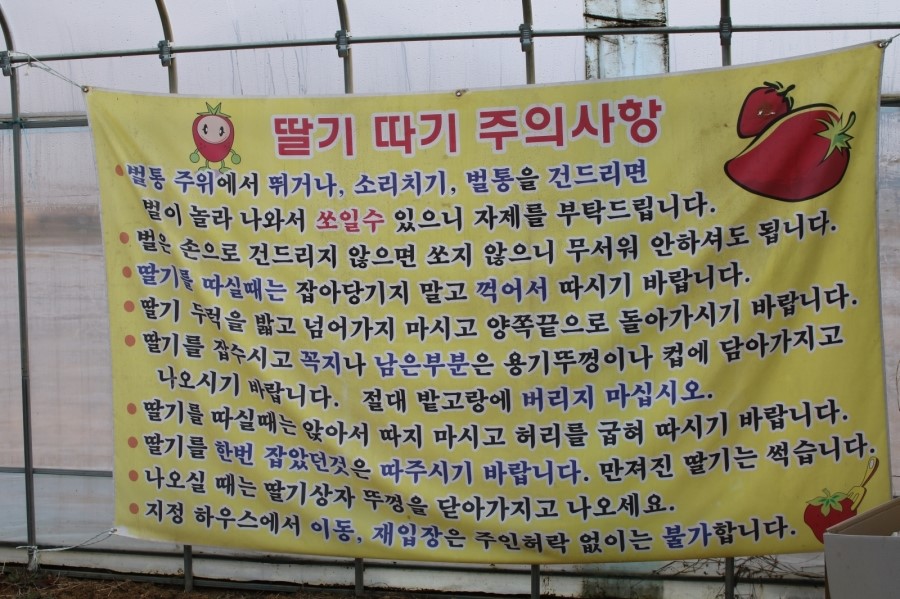 딸기 따기 주의사항
• 벌통 주위에서 뛰거나, 소리치기, 벌통을 건드리면
벌이 놀라 나와서 쏘일수 있으니 자제를 부탁드립니다.
• 벌은 손으로 건드리지 않으면 쏘지 않으니 무서워 안하셔도 됩니다.
• 딸기를 따실때는 잡아당기지 말고 꺽어서 따시기 바랍니다.
• 딸기 두럭을 밟고 넘어가지 마시고 양쪽끝으로 돌아가시기 바랍니다.
• 딸기를 잡수시고 꼭지나 남은부분은 용기뚜껑이나 컵에 담아가지고
나오시기 바랍니다. 절대 밭고랑에 버리지 마십시오.
• 딸기를 따실때는 앉아서 따지 마시고 허리를 굽혀 따시기 바랍니다.
• 딸기를 한번 잡았던것은 따주시기 바랍니다. 만져진 딸기는 썩습니다.
• 나오실 때는 딸기상자 뚜껑을 닫아가지고 나오세요.
• 지정 하우스에서 이동, 재입장은 주인허락 없이는 불가합니다.